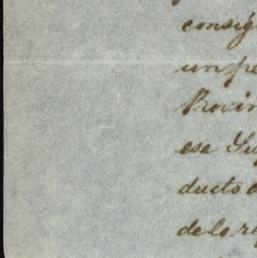 consig
un pe
Provin
ese Ju
ducto
de lo r